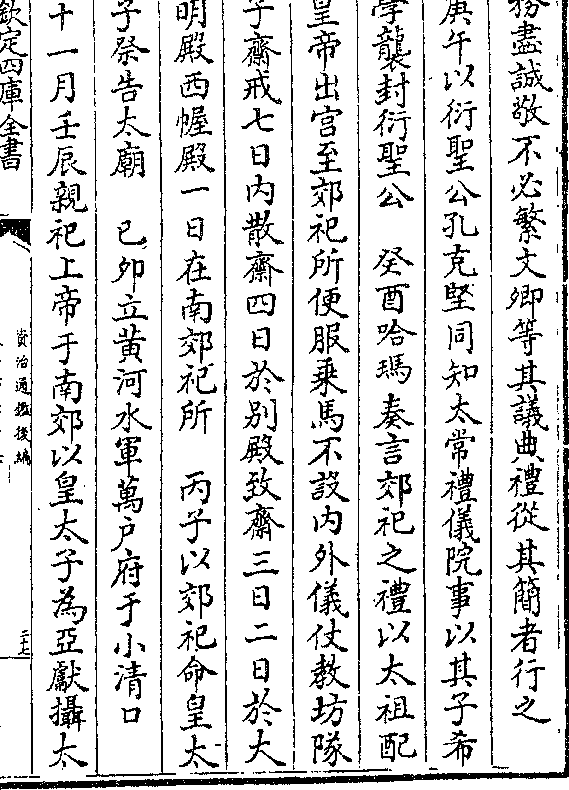 務盡誠敬不必繁文卿等其議典禮從其簡者行之
庚午以衍聖公孔克堅同知太常禮儀院事以其子希
學襲封衍聖公　癸酉哈瑪奏言郊祀之禮以太祖配
皇帝出宮至郊祀所便服乘馬不設內外儀仗教坊隊
子齋戒七日內散齋四日於別殿致齋三日二日於大
明殿西幄殿一日在南郊祀所　丙子以郊祀命皇太
子祭告太廟　己卯立黃河水軍萬戶府于小清口
十一月壬辰親祀上帝于南郊以皇太子為亞獻攝太
欽定四庫全書
資治通鑑後編